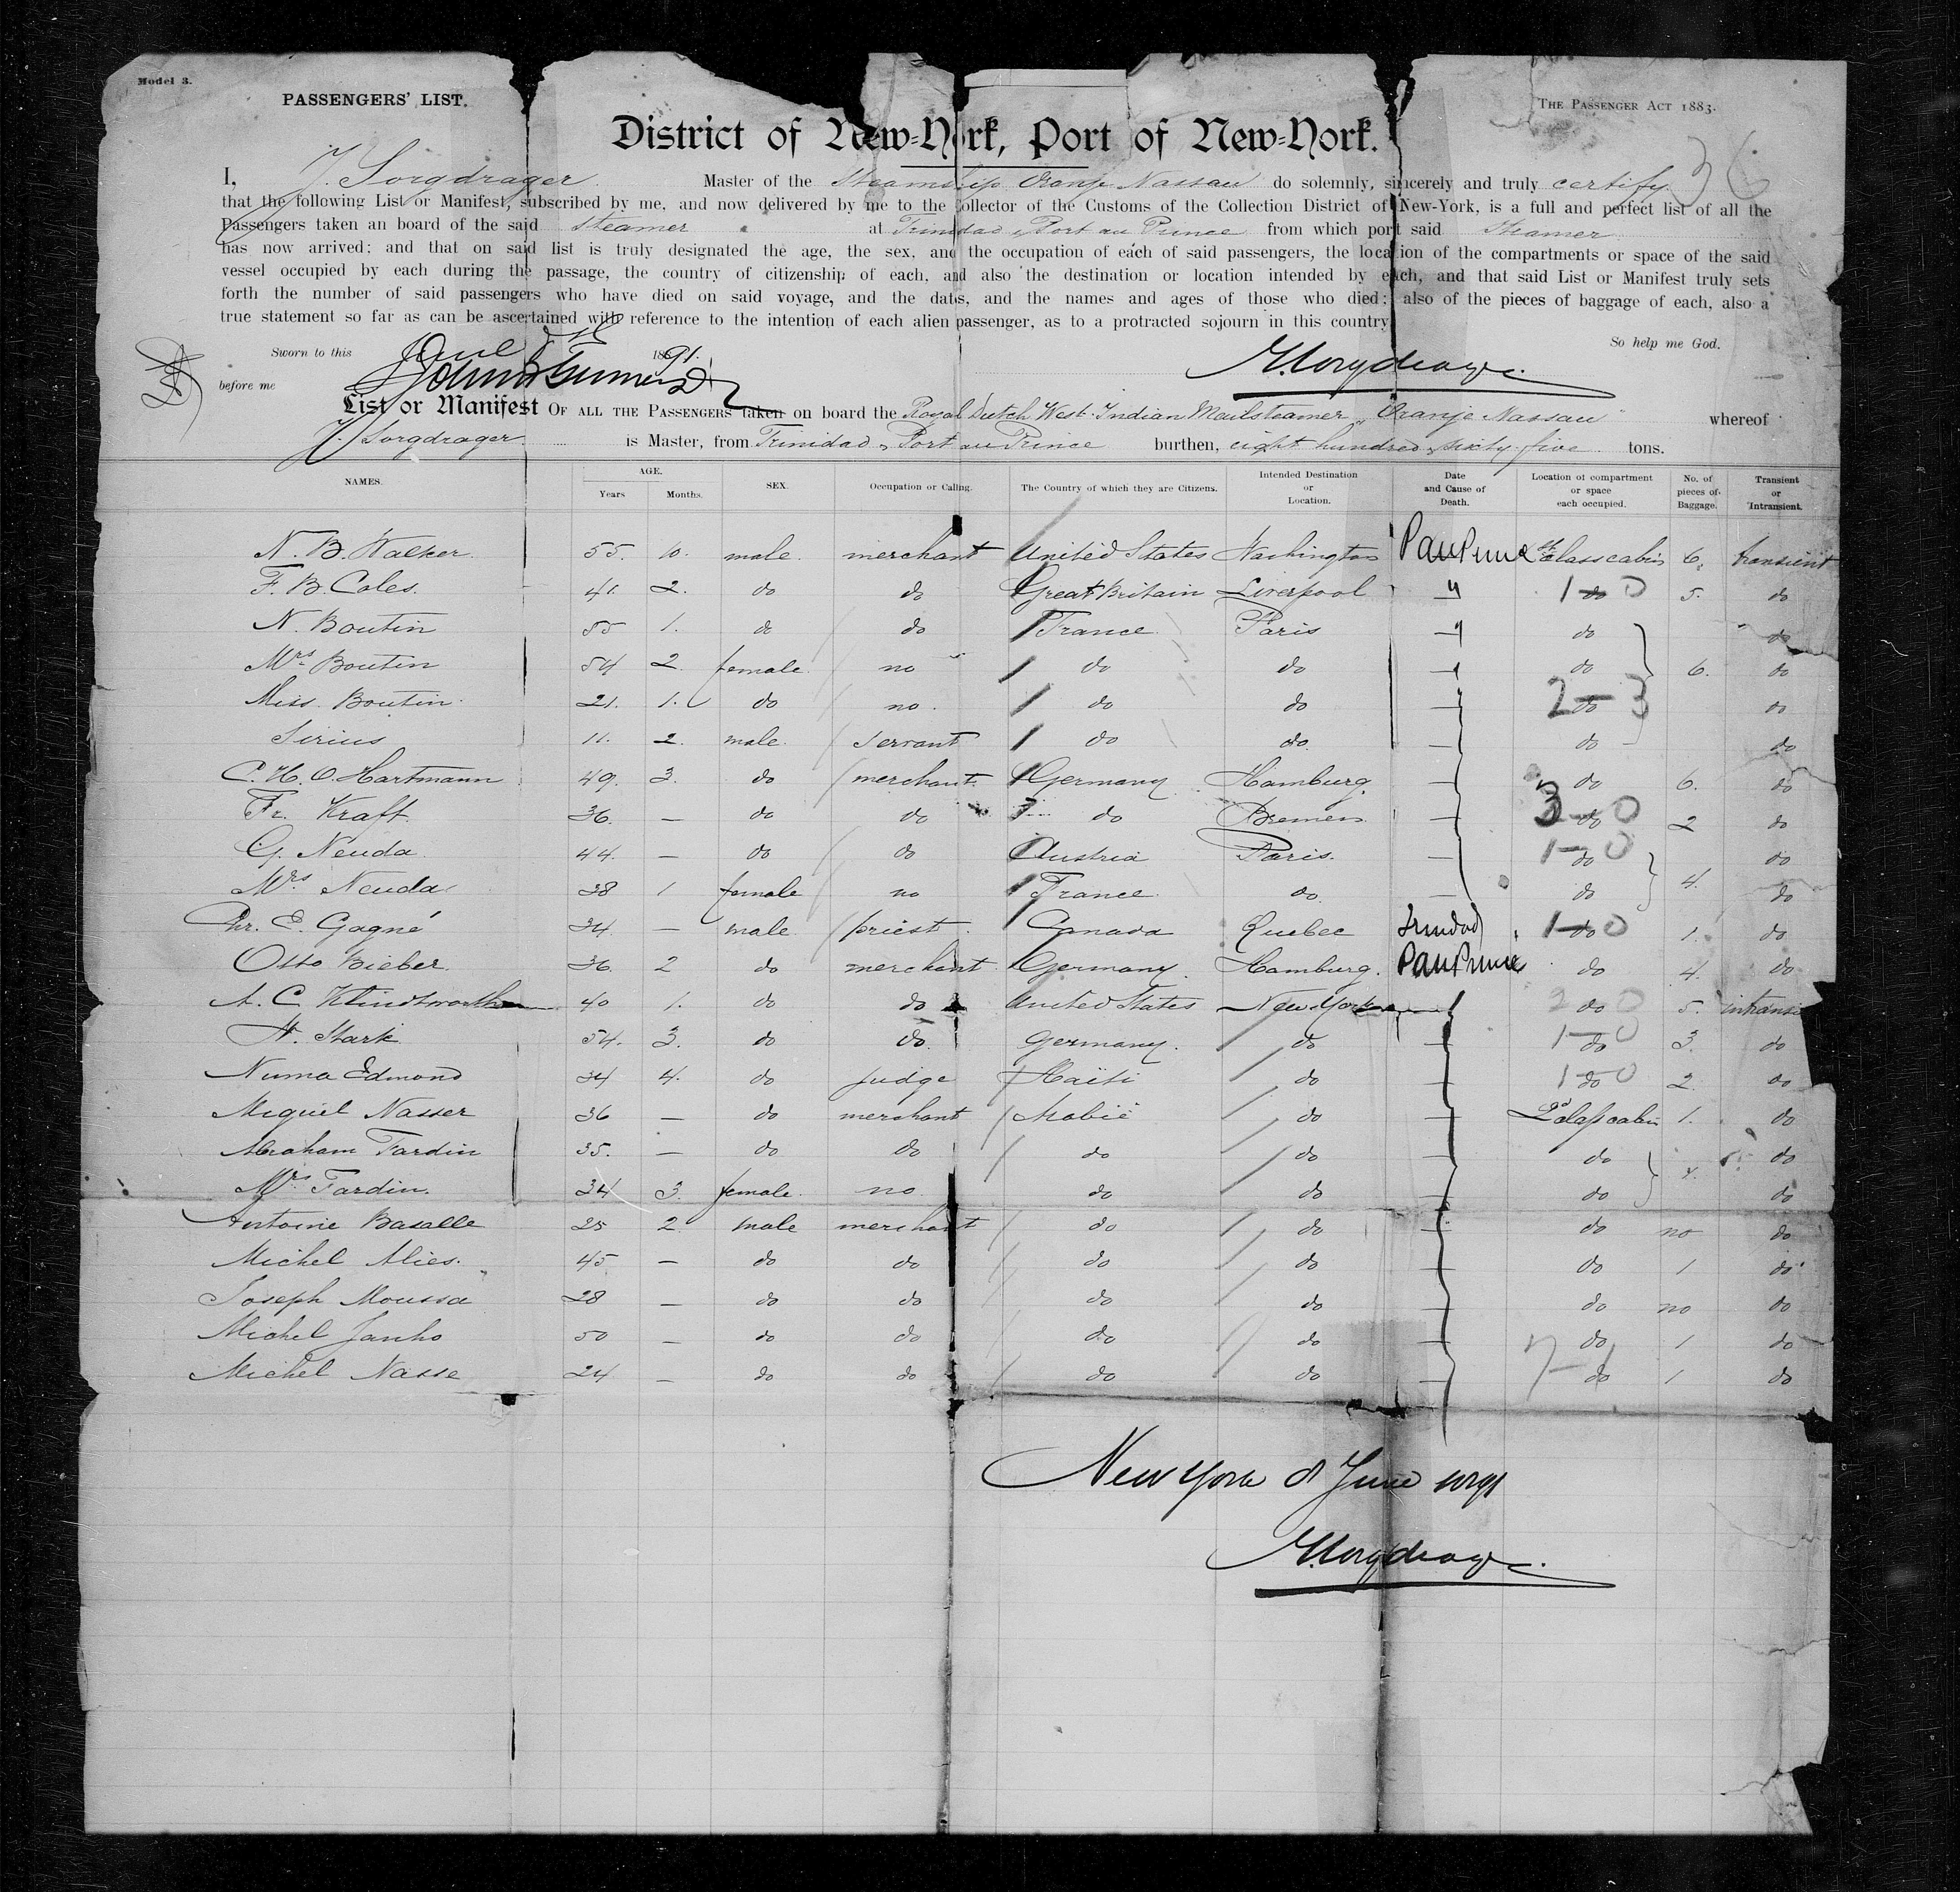 Model 3.
PASSENGERS' LIST.
THE PASSENGER ACT 1883.
36
District of New-York, Port of New-York.
I, J. Sorgdrager Master of the Steamship Oranje Nassau do solemnly, sincerely and truly certify
that the following List or Manifest, subscribed by me, and now delivered by me to the Collector of the Customs of the Collection District of New-York, is a full and perfect list of all the
Passengers taken an board of the said steamer at Trinidad & Port au Prince from which port said Steamer
has now arrived; and that on said list is truly designated the age, the sex, and the occupation of each of said passengers, the location of the compartments or space of the said
vessel occupied by each during the passage, the country of citizenship of each, and also the destination or location intended by each, and that said List or Manifest truly sets
forth the number of said passengers who have died on said voyage, and the dates, and the names and ages of those who died; also of the pieces of baggage of each, also a
true statement so far as can be ascertained with reference to the intention of each alien passenger, as to a protracted sojourn in this country.
So help me God.
Sworn to this June 8th 1891.
before me
List or Manifest OF ALL THE PASSENGERS taken on board the Royal Dutch West-Indian Mailsteamer "Oranje Nassau" whereof
J. Sorgdrager is Master, from Trinidad & Port au Prince burthen, eight hundred & sixty five tons.
NAMES. AGE. Years Months. SEX. Occupation or Calling. The Country of which they are Citizens. Intended Destination or Location. Date and Cause of Death. Location of compartment or space each occupied. No. of pieces of Baggage. Transient or Intransient.
N. B. Walker 55. 10. male. merchant United States Washington PauPrince 1st class cabin 6. transient
F. B. Coles. 41. 2. do do Great Britain Liverpool " 1-0 do 5. do
N. Boutin 55 1. do do France Paris " do do
Mrs Boutin 54 2 female no do do do 6. do
Miss Boutin 21. 1. do no. do do 2-3 do do
Sirius 11. 2. male servant do do. — do do
C. H. O. Hartmann 49. 3. do merchant Germany Hamburg. — do 6. do
Fr. Kraft 36. — do do do Bremen — 3-0 do 2 do
G. Neuda 44. — do do Austria Paris. — 1-0 do do
Mrs. Neuda 38 1 female no France do. — do 4. do
Chr. E. Gagné 34 — male priest. Canada Quebec Trinidad 1-0 do 1. do
Otto Bieber. 36. 2 do merchant Germany. Hamburg. PauPrince do 4. do
A. C. Klindtworth 40 1. do do United States New York 2 do 0 5. intransi
H. Stark 54. 3. do do. Germany. do — 1-0 do 3. do
Numa Edmond 34 4. do judge Haïti do — 1-0 do 2. do
Miquel Nasser 36 — do merchant do — 2d class cabin 1. do
Abraham Tardin 35. — do do do do — do do
Mrs Tardin. 34 3. female. no do do — do 4. do
Antoine Basalle 25 2 male merchant do do — do no do
Michel Alies. 45 — do do do do — do 1 do
Joseph Moussa 28 — do do do do — do no do
Michel Janho 50 — do do do do — do 1 do
Michel Nasse 24 — do do do do — 7-1 do 1 do
New York 8 June 1891